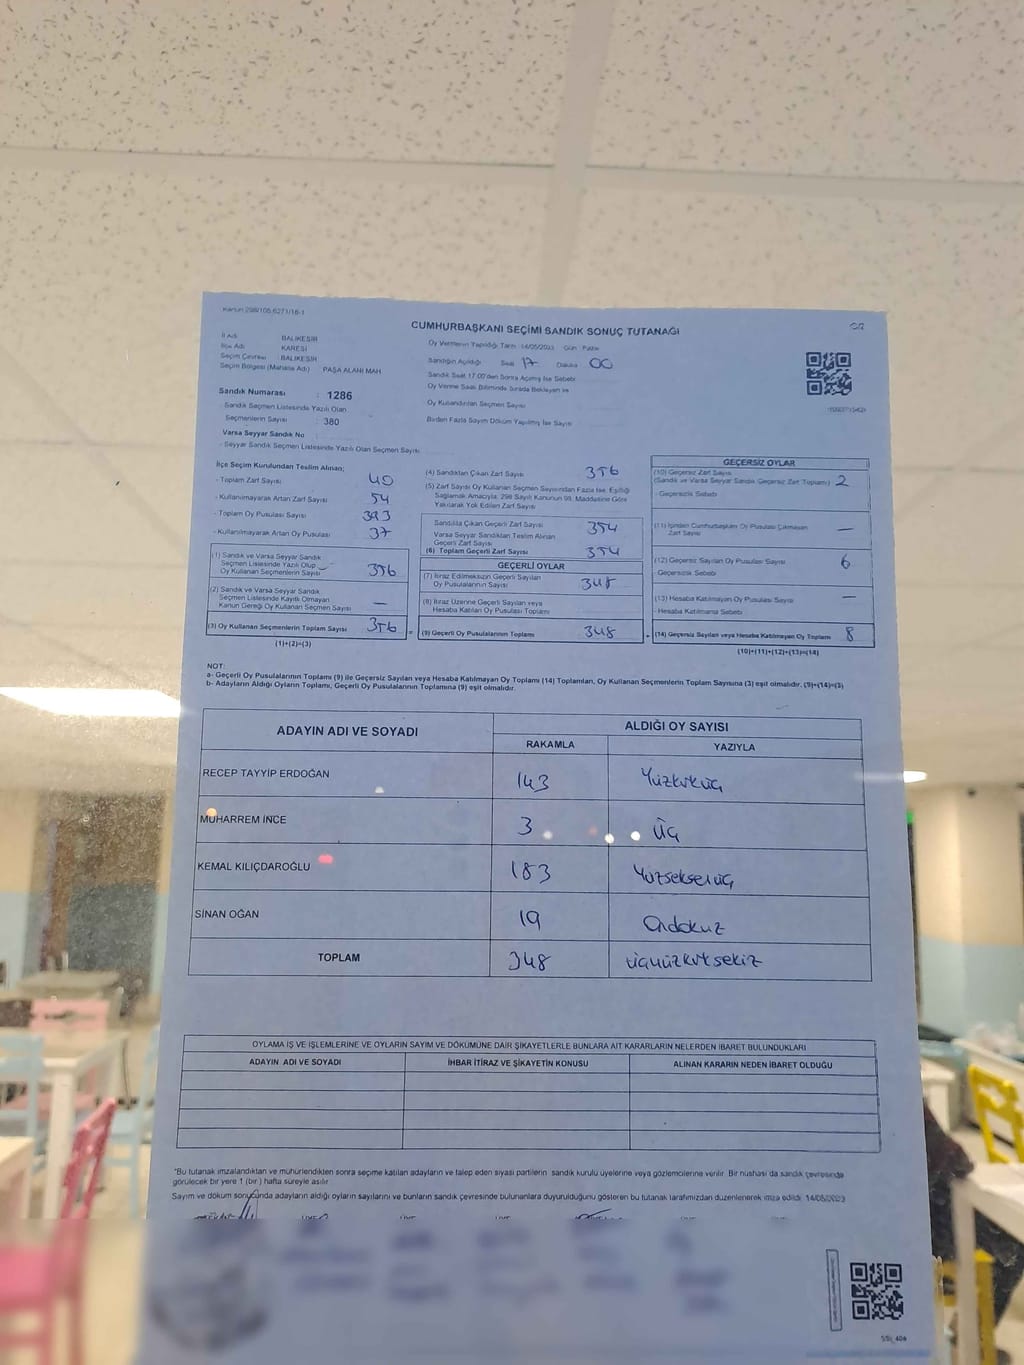 Kanun 298/105,6271/16-1
CUMHURBAŞKANI SEÇİMİ SANDIK SONUÇ TUTANAĞI
İl Adı : BALIKESİR
İlçe Adı : KARESİ
Seçim Çevresi : BALIKESİR
Seçim Bölgesi (Mahalle Adı) : PAŞA ALANI MAH
Sandık Numarası : 1286
Sandık Seçmen Listesinde Yazılı Olan
Seçmenlerin Sayısı : 380
Varsa Seyyar Sandık No
- Seyyar Sandık Seçmen Listesinde Yazılı Olan Seçmen Sayısı
Oy Vermenin Yapıldığı Tarih 14/05/2023 Gün Pazar
Sandığın Açıldığı Saat 17 Dakika 00
Sandık Saat 17:00'den Sonra Açılmış İse Sebebi
Oy Verme Saati Bitiminde Sırada Bekleyen ve
Oy Kullandırılan Seçmen Sayısı
Birden Fazla Sayım Döküm Yapılmış İse Sayısı
İlçe Seçim Kurulundan Teslim Alınan;
- Toplam Zarf Sayısı 40
- Kullanılmayarak Artan Zarf Sayısı 54
- Toplam Oy Pusulası Sayısı 393
- Kullanılmayarak Artan Oy Pusulası 37
(1) Sandık ve Varsa Seyyar Sandık
Seçmen Listesinde Yazılı Olup
Oy Kullanan Seçmenlerin Sayısı 356
(2) Sandık ve Varsa Seyyar Sandık
Seçmen Listesinde Kayıtlı Olmayan
Kanun Gereği Oy Kullanan Seçmen Sayısı —
(3) Oy Kullanan Seçmenlerin Toplam Sayısı 356
(1)+(2)=(3)
(4) Sandıktan Çıkan Zarf Sayısı 356
(5) Zarf Sayısı Oy Kullanan Seçmen Sayısından Fazla İse, Eşitliği
Sağlamak Amacıyla, 298 Sayılı Kanunun 98. Maddesine Göre
Yakılarak Yok Edilen Zarf Sayısı
Sandıkta Çıkan Geçerli Zarf Sayısı 354
Varsa Seyyar Sandıktan Teslim Alınan
Geçerli Zarf Sayısı
(6) Toplam Geçerli Zarf Sayısı 354
GEÇERLİ OYLAR
(7) İtiraz Edilmeksizin Geçerli Sayılan
Oy Pusulalarının Sayısı 348
(8) İtiraz Üzerine Geçerli Sayılan veya
Hesaba Katılan Oy Pusulası Toplamı
(9) Geçerli Oy Pusulalarının Toplamı 348
GEÇERSİZ OYLAR
(10) Geçersiz Zarf Sayısı
(Sandık ve Varsa Seyyar Sandık Geçersiz Zarf Toplamı) 2
- Geçersizlik Sebebi
(11) İçinden Cumhurbaşkanı Oy Pusulası Çıkmayan
Zarf Sayısı —
(12) Geçersiz Sayılan Oy Pusulası Sayısı 6
- Geçersizlik Sebebi
(13) Hesaba Katılmayan Oy Pusulası Sayısı —
- Hesaba Katılmama Sebebi
(14) Geçersiz Sayılan veya Hesaba Katılmayan Oy Toplamı 8
(10)+(11)+(12)+(13)=(14)
NOT:
a- Geçerli Oy Pusulalarının Toplamı (9) ile Geçersiz Sayılan veya Hesaba Katılmayan Oy Toplamı (14) Toplamları, Oy Kullanan Seçmenlerin Toplam Sayısına (3) eşit olmalıdır. (9)+(14)=(3)
b- Adayların Aldığı Oyların Toplamı, Geçerli Oy Pusulalarının Toplamına (9) eşit olmalıdır.
ADAYIN ADI VE SOYADI ALDIĞI OY SAYISI
RAKAMLA YAZIYLA
RECEP TAYYİP ERDOĞAN 143 Yüzkırküç
MUHARREM İNCE 3 Üç
KEMAL KILIÇDAROĞLU 183 Yüzseksenüç
SİNAN OĞAN 19 Ondokuz
TOPLAM 348 üçyüzkırksekiz
OYLAMA İŞ VE İŞLEMLERİNE VE OYLARIN SAYIM VE DÖKÜMÜNE DAİR ŞİKAYETLERLE BUNLARA AİT KARARLARIN NELERDEN İBARET BULUNDUKLARI
ADAYIN ADI VE SOYADI İHBAR İTİRAZ VE ŞİKAYETİN KONUSU ALINAN KARARIN NEDEN İBARET OLDUĞU
*Bu tutanak imzalandıktan ve mühürlendikten sonra seçime katılan adayların ve talep eden siyasi partilerin sandık kurulu üyelerine veya gözlemcilerine verilir. Bir nüshası da sandık çevresinde
görülecek bir yere 1 (bir) hafta süreyle asılır.
Sayım ve döküm sonucunda adayların aldığı oyların sayılarını ve bunların sandık çevresinde bulunanlara duyurulduğunu gösteren bu tutanak tarafımızdan düzenlenerek imza edildi. 14/05/2023